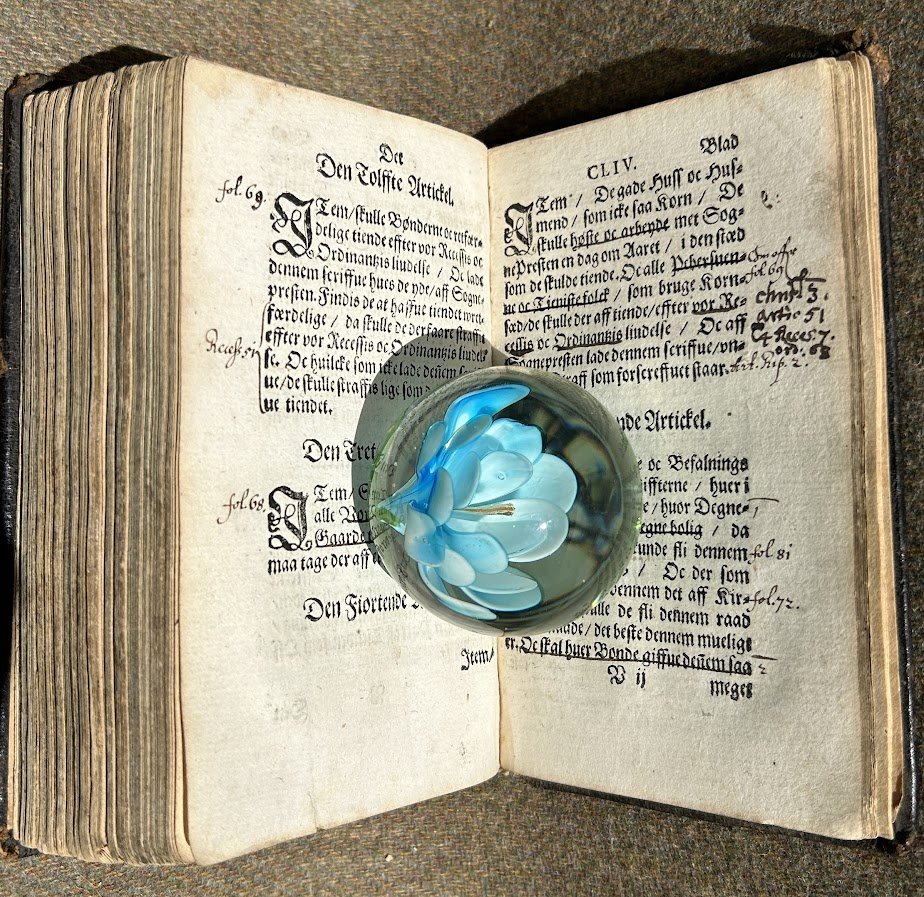 Det
Den Tolffte Artickel.
fol. 69.
ITem/skulle Bønderne oc retfær-
delige tiende effter vor Recessis oc
Ordinantzis liudelse / Oc lade
dennem scriffue hues de yde/aff Sogne-
presten. Findis de at haffue tiendet wret-
færdelige / da skulle de derfaare straffis
Recess. 51
effter vor Recessis oc Ordinantzis liudels
se. Oc huilcke som icke lade deñem
ue/de skulle straffis lige som
ue tiendet.
Den
fol. 68.
ITem/
alle
Gaarde
maa tage der aff
Den Fiortende
Item/
CLIV. Blad
ITem / De gade Huss oc Huss-
mend / som icke saa Korn / De
skulle høste oc arbeyde met Sog-
nePresten en dag om Aaret / i den stæd
som de skulde tiende. Oc alle Pebersuen-
fol. 69
ne oc Tieniste folck / som bruge Korn-
sæd/de skulle der aff tiende/effter vor Re-
artic 51
cessis oc Ordinantzis liudelse / Oc aff
Recess. 7.
ord. 68
Sognepresten lade dennem scriffue/vn-
som forscreffuet staar.
nde Artickel.
oc Befalnings
iffterne / huer i
/ huor Degne-
egnebolig / da
unde fli dennem
fol 81
/ Oc der som
dennem det aff Kir-
fol. 72.
ulle de fli deñem raad
/ det beste dennem mueligt
er. Oc skal huer Bonde giffue deñem saa
V ij
meget